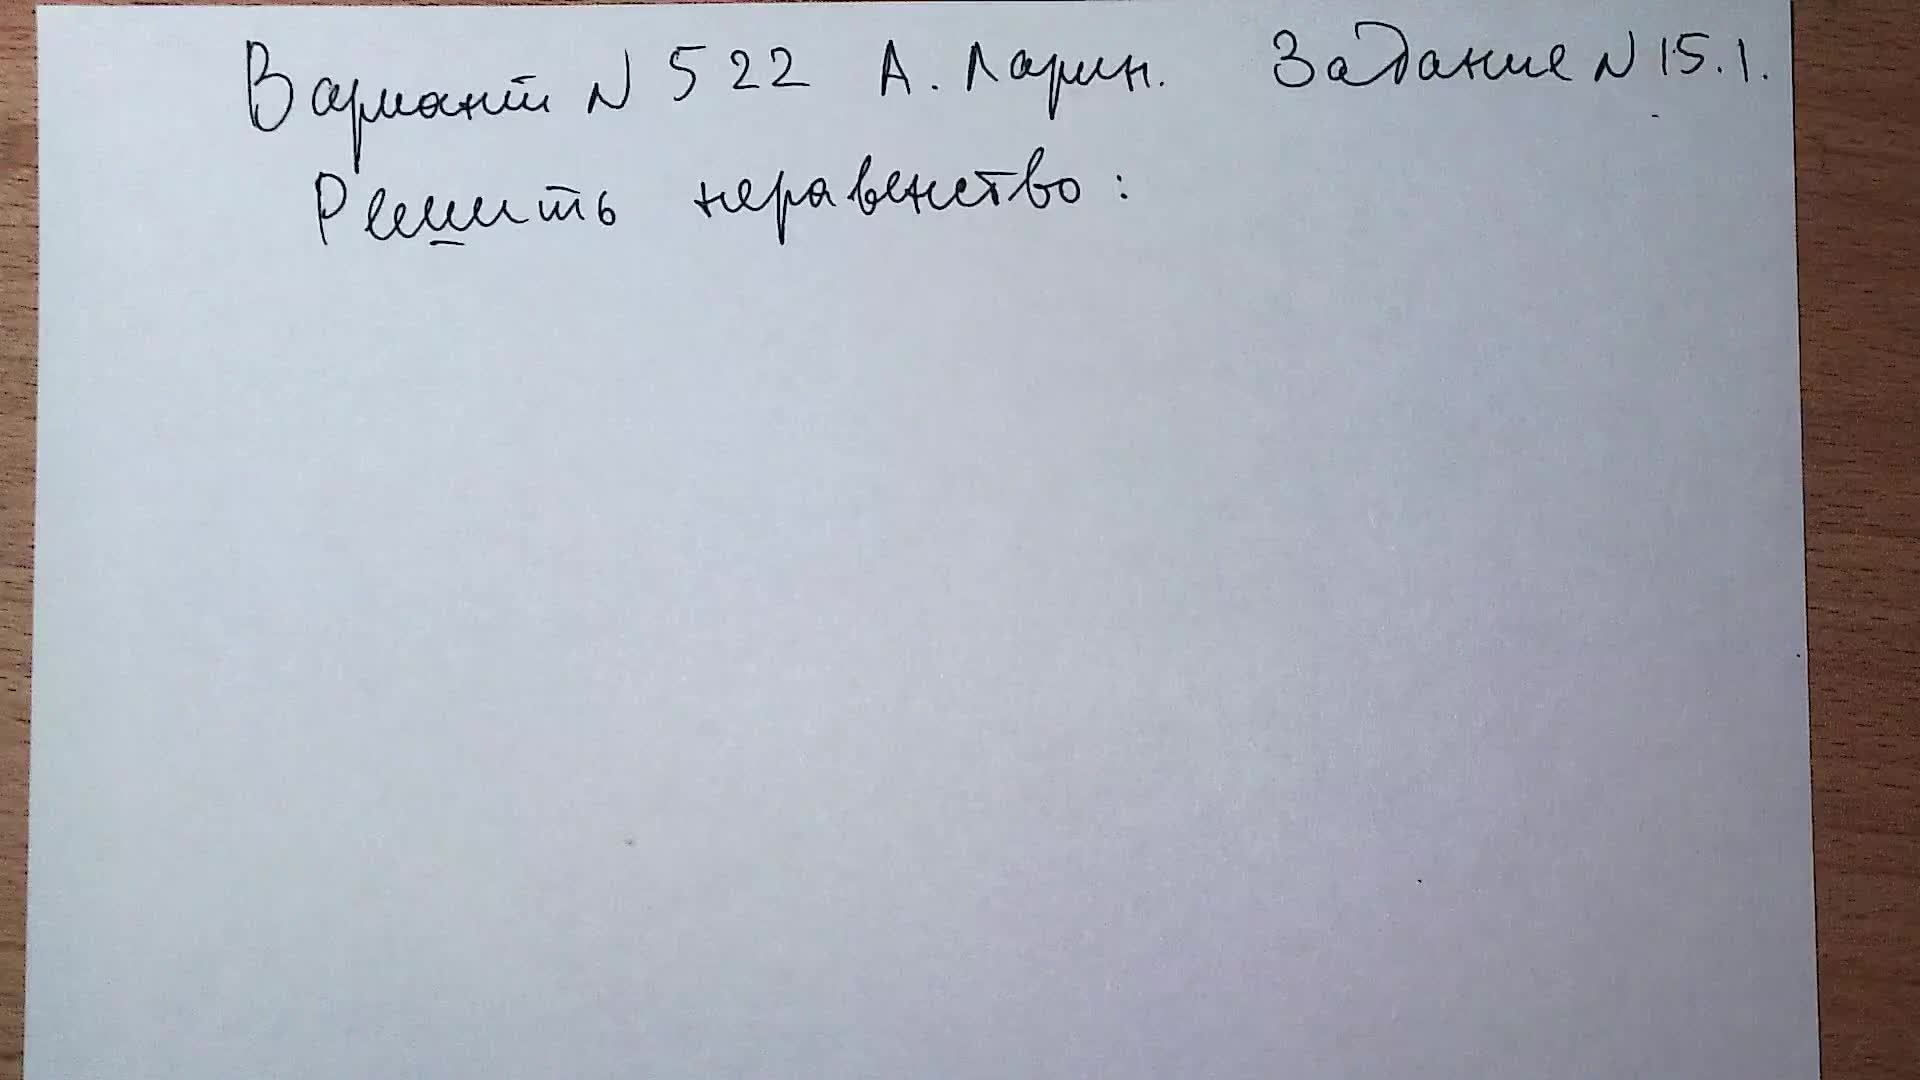 Вариант N 522 А. Ларин. Задание N 15.1.
Решить неравенство: